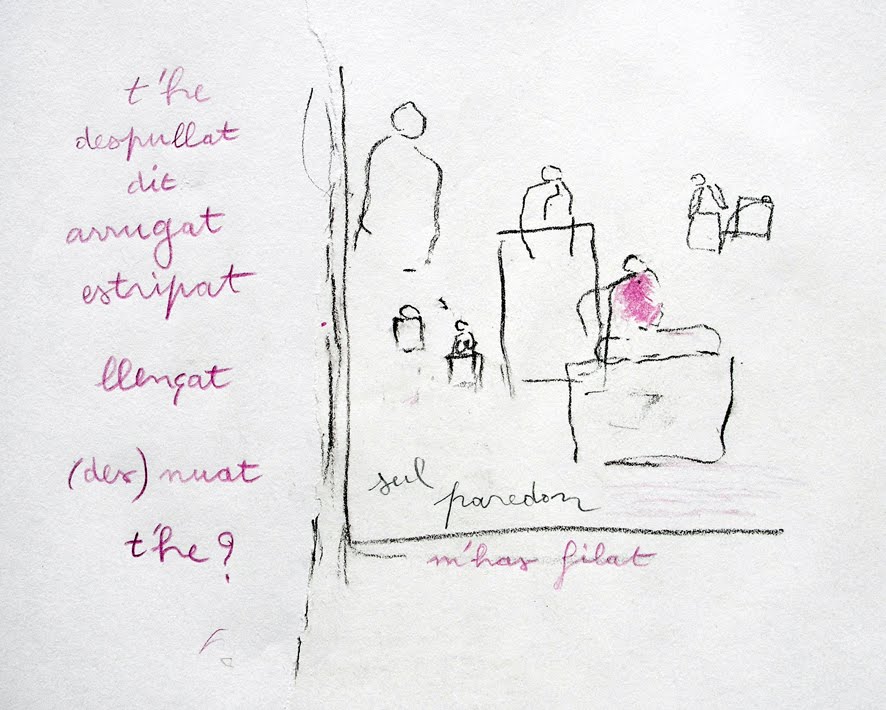 t'he
despullat
dit
arrugat
estripat
llençat
(des) nuat
t'he?
seul
paredon
m'has filat